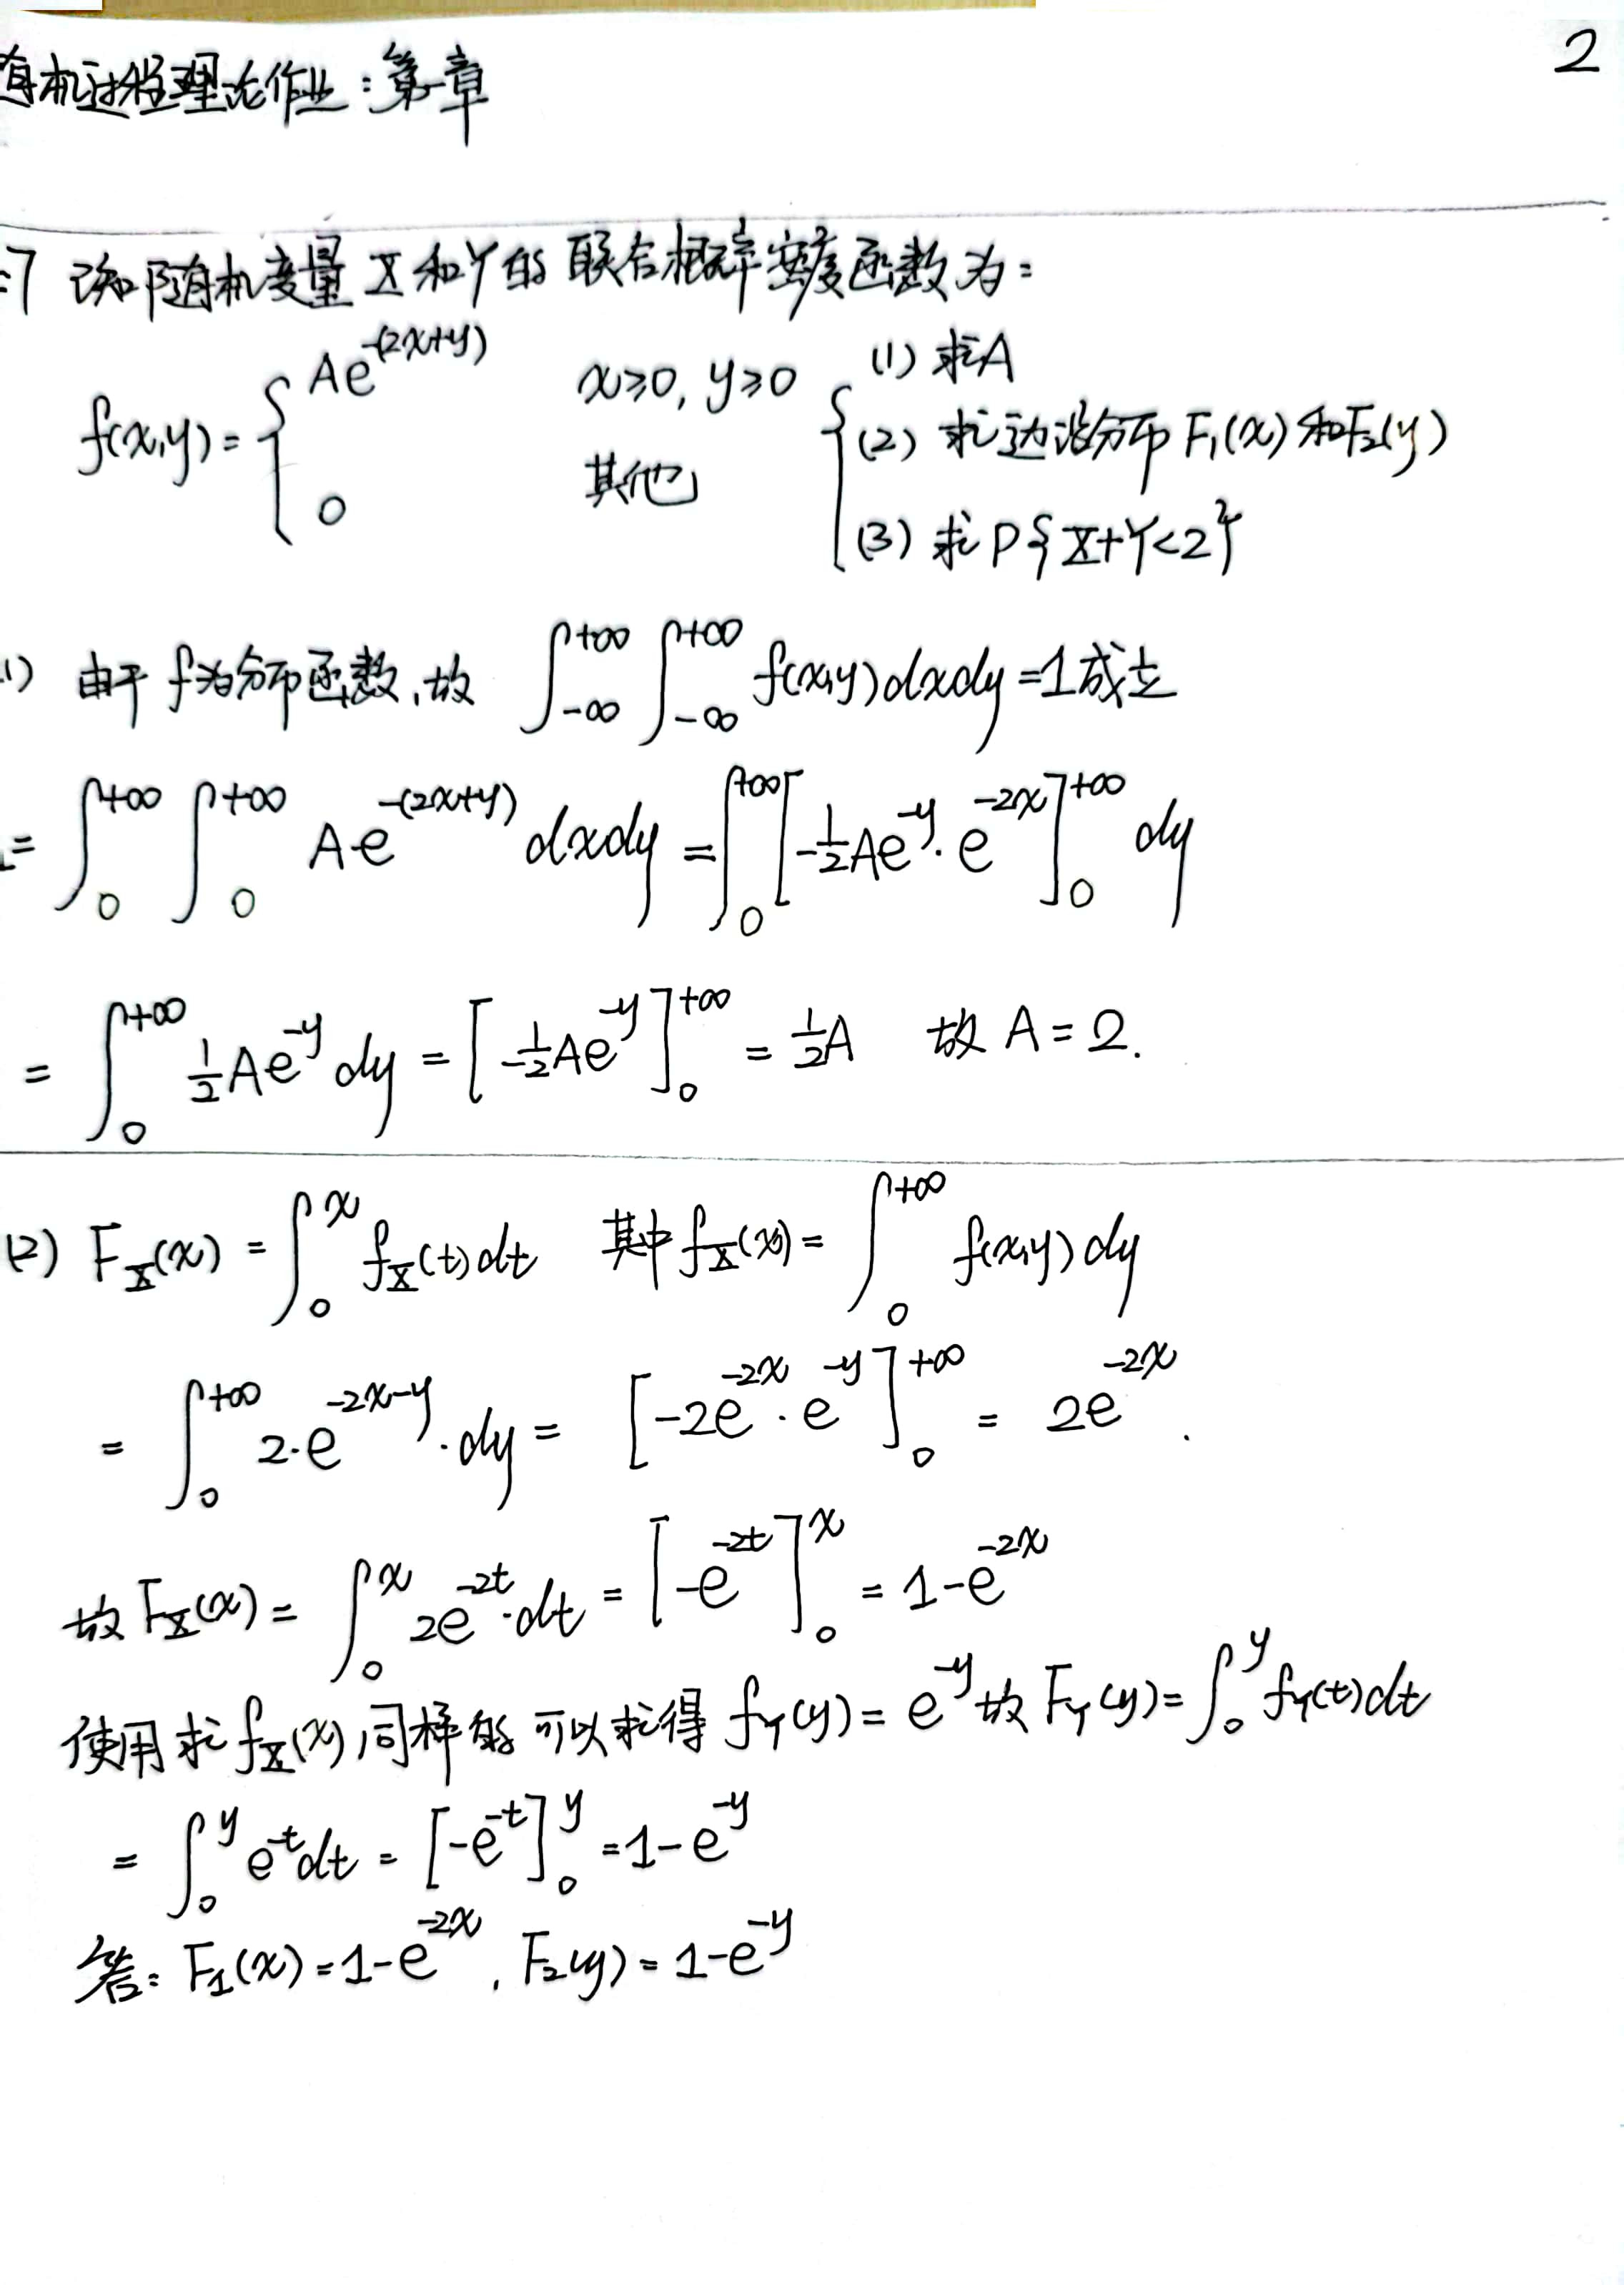 随机过程理论作业：第一章
2
7 已知随机变量 X 和 Y 的 联合概率密度函数为：
f(x,y) = { Ae^{-(2x+y)} x≥0, y≥0
0 其他
(1) 求A
(2) 求边沿分布 F₁(x) 和F₂(y)
(3) 求 P{X+Y<2}
(1) 由于 f为分布函数，故 ∫_{-∞}^{+∞} ∫_{-∞}^{+∞} f(x,y) dxdy = 1成立
= ∫_0^{+∞} ∫_0^{+∞} A·e^{-(2x+y)} dxdy = ∫_0^{+∞} [-½Ae^{-y}·e^{-2x}]_0^{+∞} dy
= ∫_0^{+∞} ½Ae^{-y} dy = [-½Ae^{-y}]_0^{+∞} = ½A 故 A = 2.
(2) F_X(x) = ∫_0^x f_X(t)dt 其中 f_X(x) = ∫_0^{+∞} f(x,y) dy
= ∫_0^{+∞} 2·e^{-2x-y}·dy = [-2e^{-2x}·e^{-y}]_0^{+∞} = 2e^{-2x}.
故 F_X(x) = ∫_0^x 2e^{-2t}·dt = [-e^{-2t}]_0^x = 1-e^{-2x}
使用求 f_X(x) 同样的 可以求得 f_Y(y) = e^{-y} 故 F_Y(y) = ∫_0^y f_Y(t)dt
= ∫_0^y e^{-t}dt = [-e^{-t}]_0^y = 1-e^{-y}
答：F₁(x) = 1-e^{-2x}, F₂(y) = 1-e^{-y}